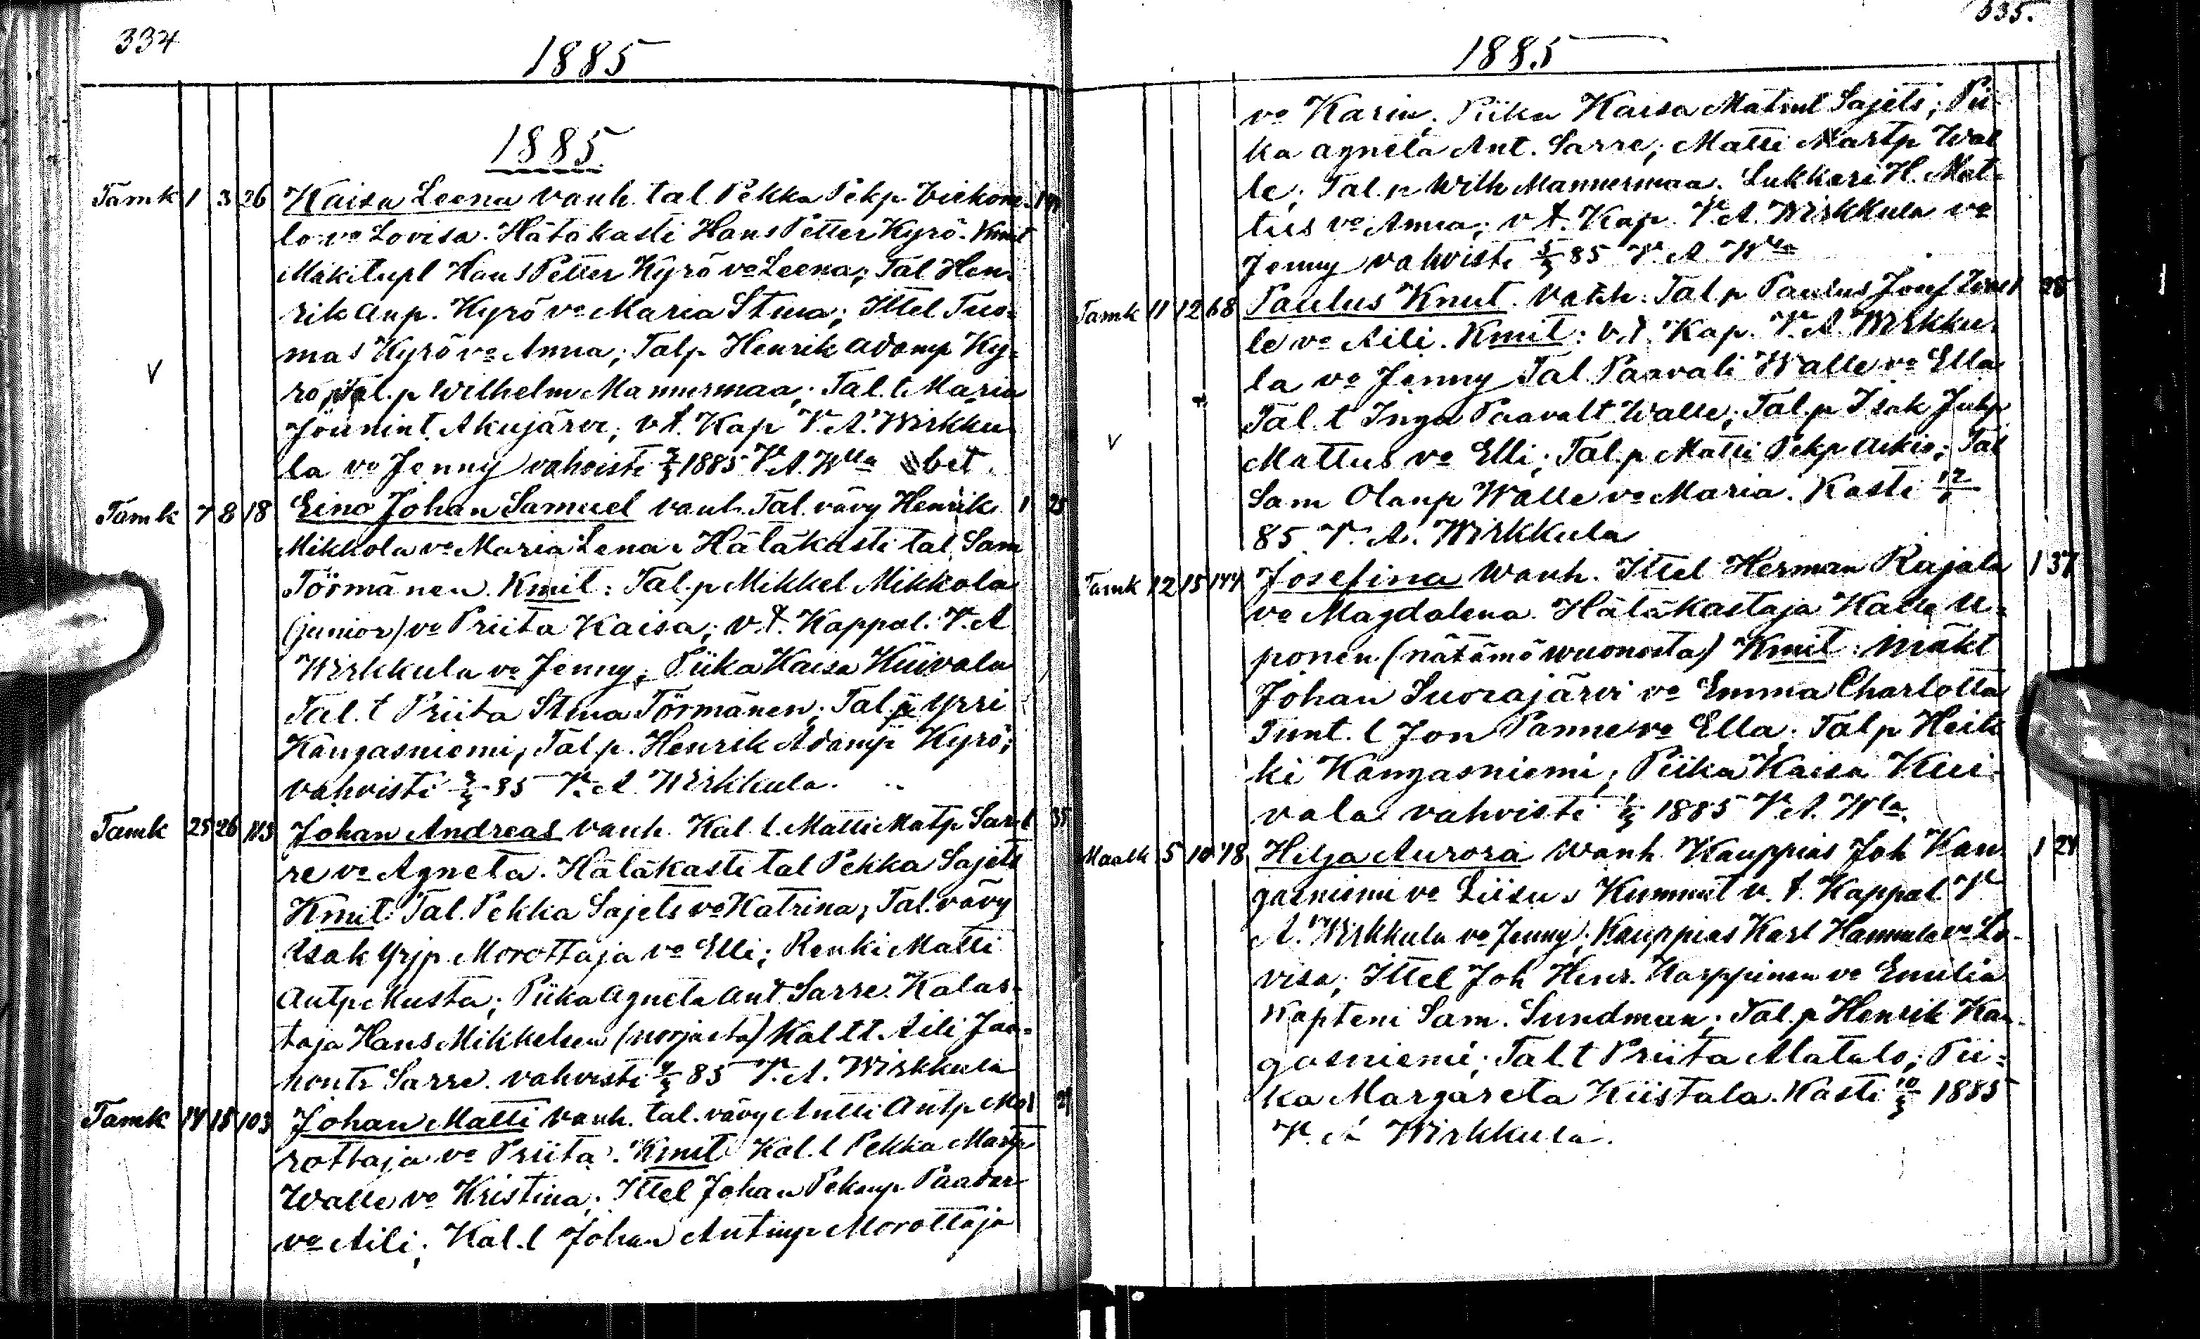 334
1885
1885
Tamk 1 3 26 Kaisa Leena vanh. tal Pekka Pekp
lo vo Lovisa. Hätäkasti Hans Petter Kyrö. Kmit
Mäkitupl Hans Petter Kyrö vo Leena; Tal Hen-
rik Anp. Kyrö vo Maria Stina; Ittel Tuo-
mas Kyrö vo Anna; Talp Henrik Adamp Ky-
rö; Tal.p Wilhelm Mannermaa; Tal.t Maria
Jounint. Akujärvi; v.t. Kap V. A. Wirkku-
la vo Jenny vahvisti 1885 V. A. Wlla bet.
Tamk 7 8 18 Eino Johan Samuel vanh. Tal. vävy Henrik 1 25
Mikkola vo Maria Lena. Hätäkasti tal. Sam
Törmänen. Kmit: Tal.p Mikkel Mikkola
(junior) vo Priita Kaisa; v.t. Kappal. V. A
Wirkkula vo Jenny; Piika Kaisa Kuivala
Tal.t Priita Stina Törmänen; Tal.p Yrri
Kangasniemi; Tal.p. Henrik Adamp Kyrö;
vahvisti 85 V. A. Wirkkula.
Tamk 25 26 113 Johan Andreas vanh. Kal. l. Matti Matp Sar- 1 35
re vo Agneta. Hätäkasti tal Pekka Sajets
Kmit: Tal. Pekka Sajets vo Katrina; Tal. vävy
Isak Yrjp Morottaja vo Elli; Renki Matti
Antp Kusta; Piika Agneta Ant. Sarre. Kalas-
taja Hans Mikkelsen (norjasta) Kal l t. Aili Juu-
hont. Sarre. vahvisti 85 V. A. Wirkkula
Tamk 14 15 103 Johan Matti vanh. tal. vävy Antti Antp Mo- 1
rottaja vo Priita. Kmit Kal. l Pekka Martp
Walle vo Kristina; Ittel Johan Pekanp Paadar
vo Aili; Kal. l Johan Antinp Morottaja
335.
1885
vo Karin. Piika Kaisa Matint Sajets; Pii-
ka Agneta Ant. Sarre; Matti Martp Wal
le; Tal.p Wilh Mannermaa. Lukkari H. Mat-
tus vo Anna; v.t. Kap. V. A. Wirkkula vo
Jenny vahvisti 85 V. A. Wlla
Tamk 11 12 68 Paulus Knut. vanh. Tal p Paulus Josef 1 28
le vo Aili. Kmit: v.t. Kap. V. A. Wirkku-
la vo Jenny Tal. Paavali Walle vo Ella
Tal. t Inga Paavalt Walle; Tal.p Isak Juhp
Mattus vo Elli; Tal.p Matti Pekp Aikio; Tal
Sam Olanp Walle vo Maria. Kasti
85 V. A. Wirkkula
Tamk 12 15 144 Josefina Wanh. Ittel Herman Rajala 1 37
vo Magdalena. Hätäkastaja Kalle U-
ponen (nätämö wuonosta) Kmit: Mäkt
Johan Suorajärvi vo Emma Charlotta
Tunt. l Jon Panne vo Ella. Tal p Heik-
ki Kangasniemi; Piika Kaisa Kui-
vala vahvisti 1885 V. A. Wla.
Maalk 5 10 78 Hilja Aurora Wanh. Kauppias Joh Kan 1 24
gasniemi vo Liisu. Kummit v. t. Kappal. V
A. Wirkkula vo Jenny; Kauppias Karl Hannula vo Lo-
visa; Ittel Joh Henr. Karppinen vo Emilia
Kapteni Sam. Sundman; Tal. p Henrik Kan-
gasniemi; Tal.t Priita Alatalo; Pii-
ka Margareta Kiistala. Kasti 10/3 1885
V. A Wirkkula.